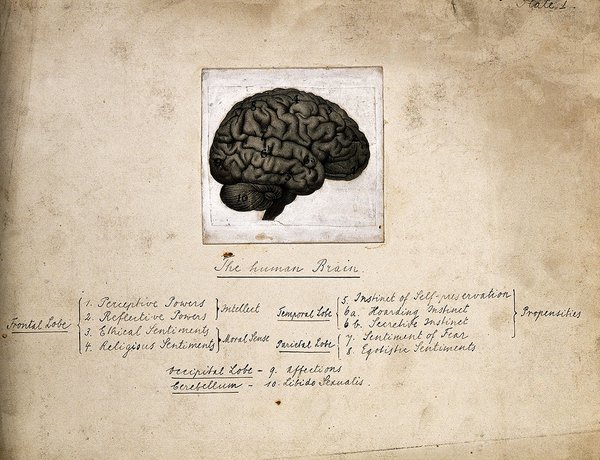 Plate 1.
10
The human Brain.
Frontal Lobe
1. Perceptive Powers
2. Reflective Powers
3. Ethical Sentiments
4. Religious Sentiments
Intellect
Moral Sense
Temporal Lobe
Parietal Lobe
5. Instinct of Self-preservation
6a. Hoarding Instinct
6b. Secretive Instinct
7. Sentiment of Fear
8. Egotistic Sentiments
Propensities
Occipital Lobe - 9. affections
Cerebellum - 10. Libido Sexualis.